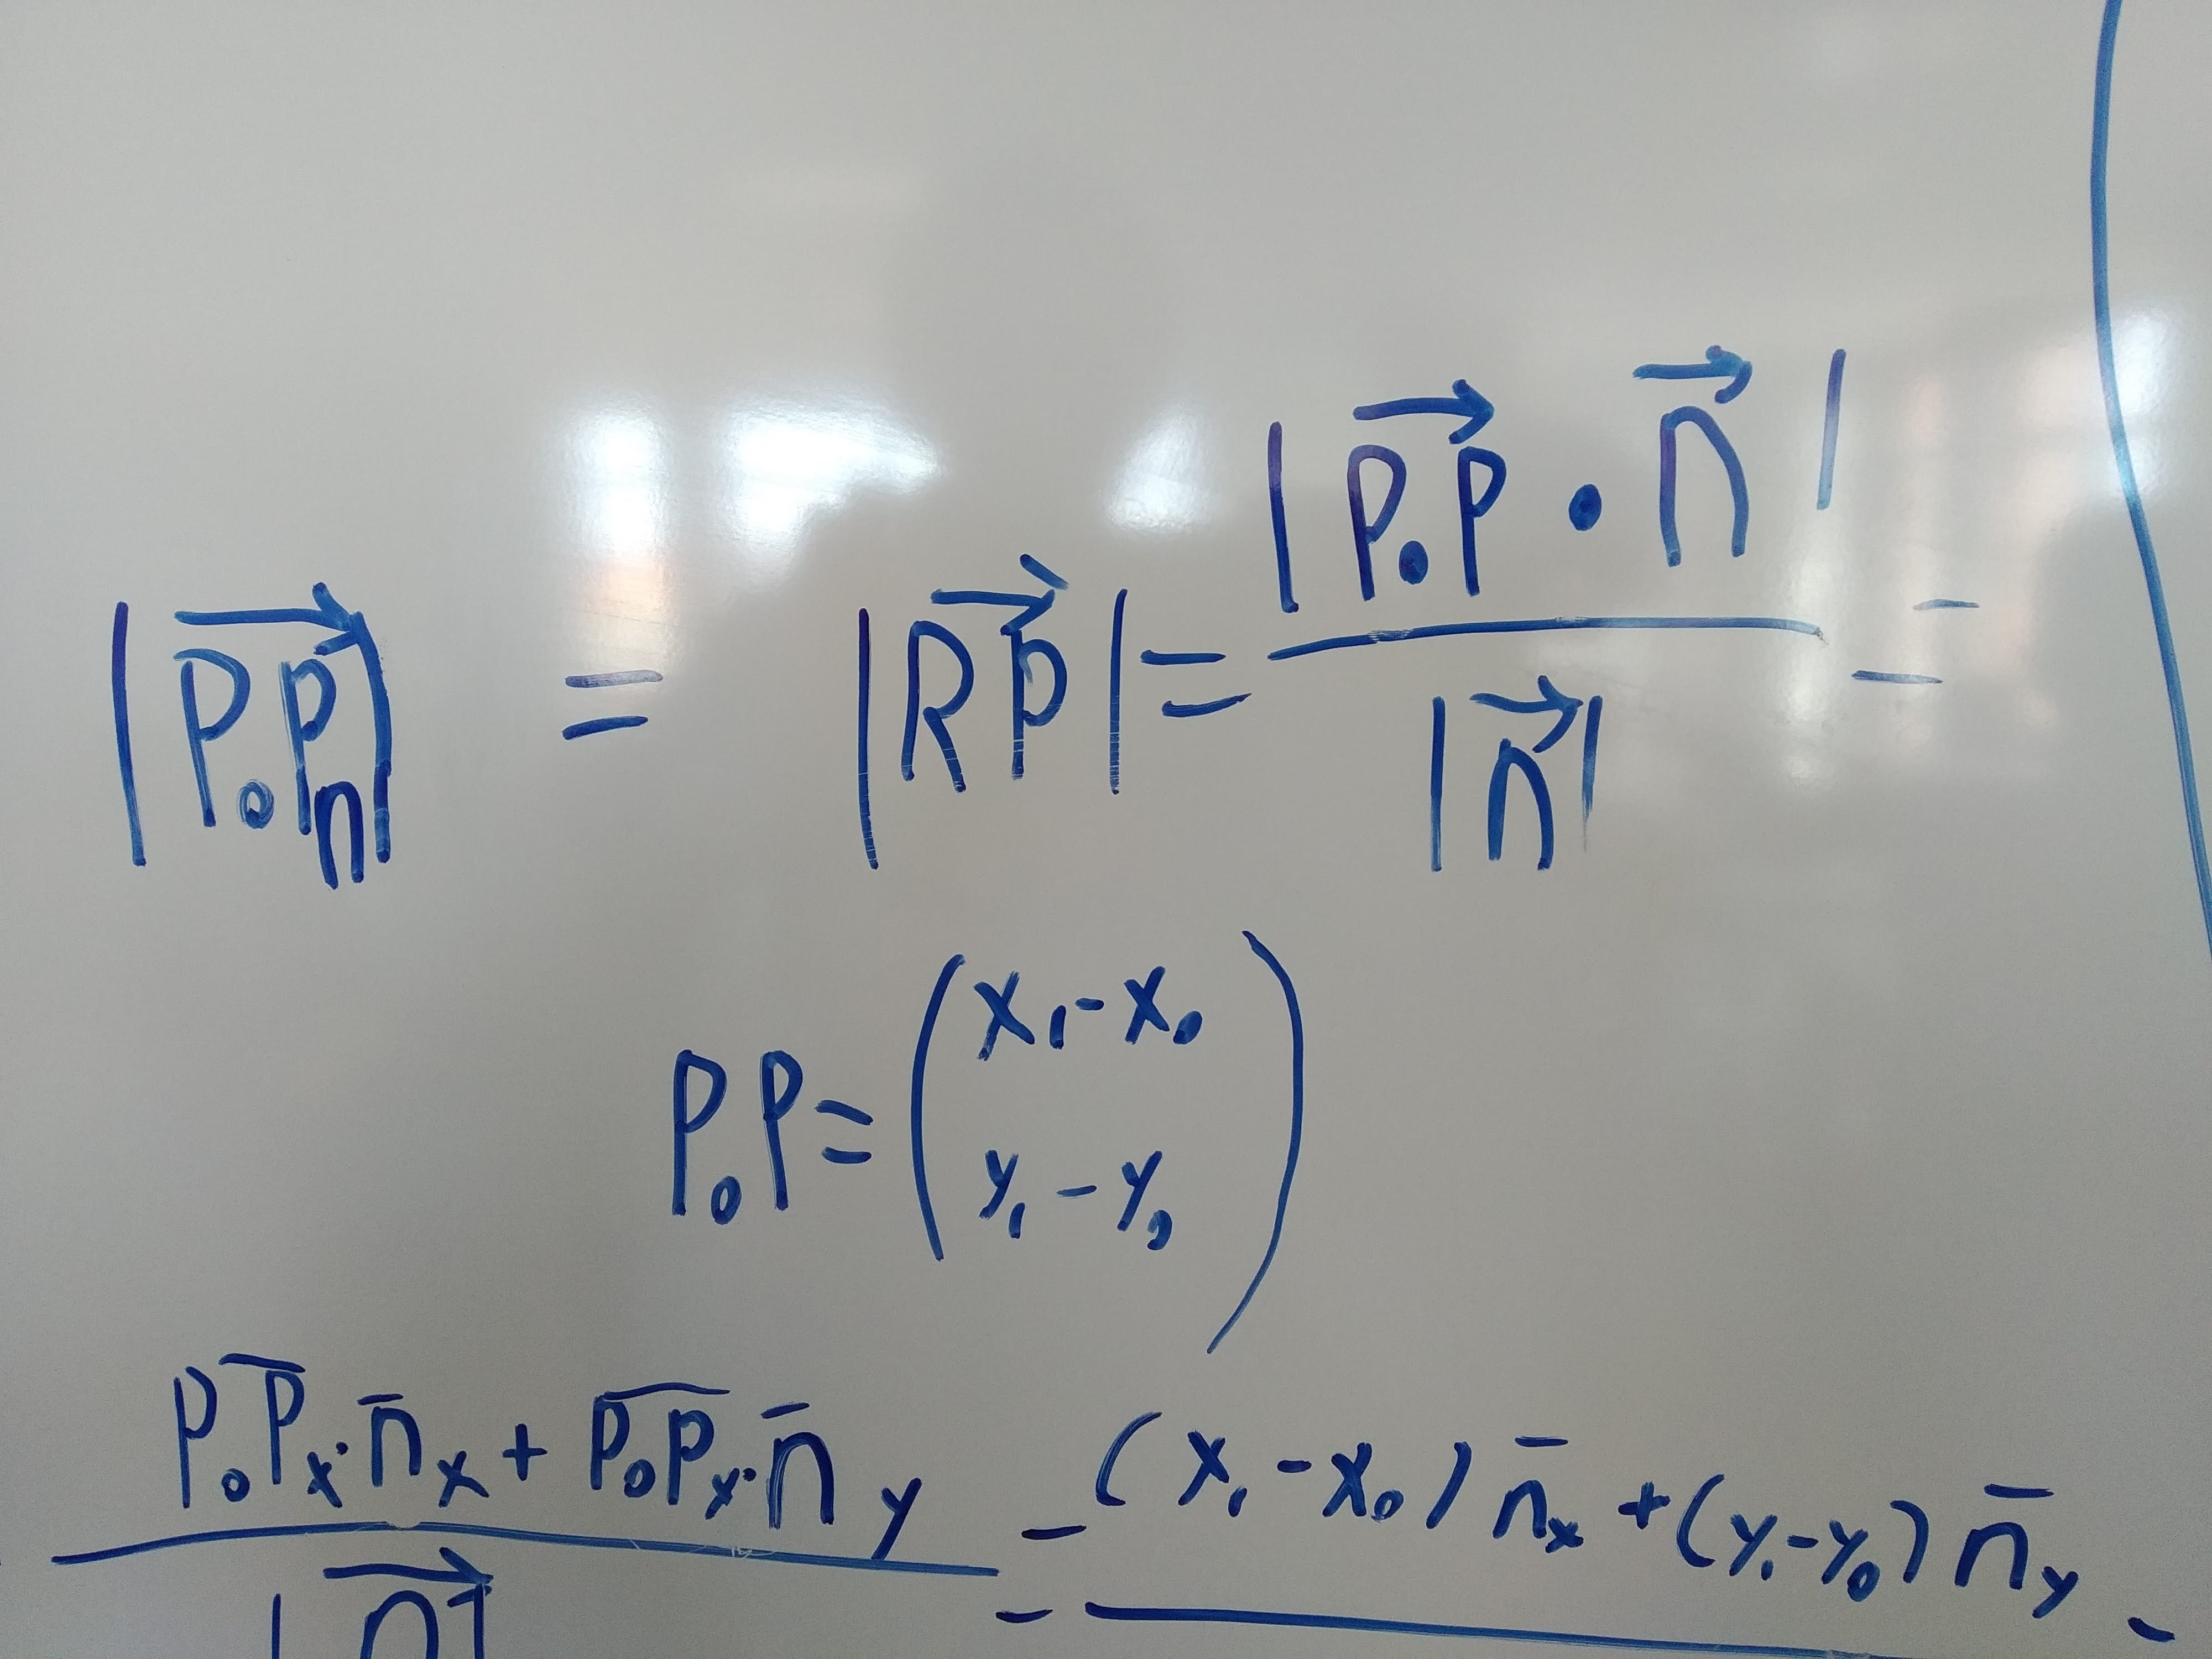 |P₀Pₙ| = |RP| = |P₀P · n| / |n| =
P₀P = (x₁ - x₀
y₁ - y₀)
P₀Pₓ · n̄ₓ + P₀Pₓ · n̄ y / |n| = (x₁ - x₀) n̄ₓ + (y₁ - y₀) n̄ y -